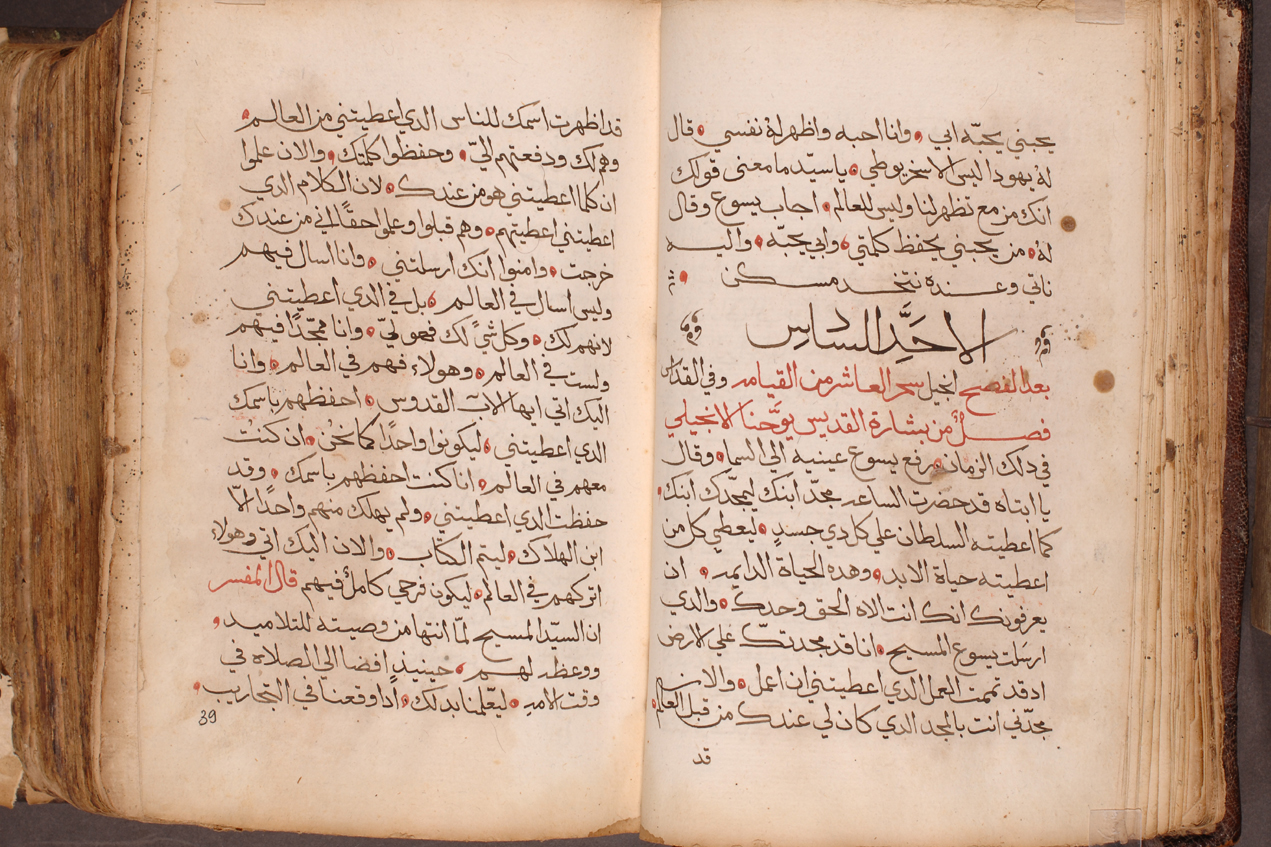 يحبني يحبّه ابي ۰ وانا احبه واظهر لهُ نفسي ۰ قال
لهُ يهودا ليس الاسخريوطي ۰ يا سيّد ما معني قولك
انك مزمع تظهر لنا وليس للعالم ۰ اجاب يسوع وقال
لهُ ۰ من يحبني يحفظ كلمتي ۰ وابي يحبّه ۰ واليه
ناتي وعنده نتخد مسكن ۰
الاحَّدِ السادس
بعد الفصح انجيل سحر العاشر من القيامه وفي القداس
فصلٌ من بشارة القديس يوحَّنا الانجيلي
في دلك الزمان ۰ رفع يسوع عينيه الي السما ۰ وقال
يا ابتاه قد حضرت الساعه مجّد ابنك ليمجّدك ابنك ۰
كما اعطيته السلطان علي كل دي جسدٍ ۰ ليعطي كل من
اعطيته حياة الابد ۰ وهده الحياة الدايمه ۰ ان
يعرفونك انك انت الاه الحق وحدك ۰ والدي
ارسَلت يسوع المسيح ۰ انا قد مجدتكّ علي الارض
اد قد تممت العمل الدي اعطيتني ان اعمل ۰ والان
مجدّني انت بالمجد الدي كان لي عندك من قبل العالم ۰
قد
قد اظهرت اسمك للناس الدي اعطيتني من العالم ۰
وهم لك ودفعتهم اليّ ۰ وحفظوا كلمتك ۰ والان علموا
ان كلما اعطيتني هو من عندك ۰ لان الكلام الدي
اعطيتني اعطيتهم ۰ وهم قبلوا وعلموا حقاً اني من عندك
خرجت ۰ وامنوا انك ارسلتني ۰ وانا اسال فيهم
وليس اسال في العالم ۰ بل في الدي اعطيتني
لانهم لك ۰ وكل شي لك فهو ليّ ۰ وانا ممجّدًا فيهم
ولست في العالم ۰ وهولاء فهم في العالم ۰ وانا
اليك اتي ايها الاب القدوس ۰ احفظهم باسمك
الدي اعطيتني ۰ ليكونوا واحدًا كما نحن ۰ ان كنت
معهم في العالم ۰ انا كنت احفظهم باسمك ۰ وقد
حفظت الدي اعطيتني ۰ ولم يهلك منهم واحدًا الّا
ابن الهلاك ۰ ليتم الكتاب ۰ والان اليك اتي وهولاء
اتركهم في العالم ۰ ليكون فرحي كاملٌ فيهم قال المفسر
ان السيّد المسيح لمّا انتها من وصيته للتلاميد ۰
ووعظه لهم ۰ حينيذٍ افضا الي الصلاه في
وقت الامرِ ۰ ليعّلمنا بدلك ۰ ادا وقعنا في التجاريب ۰
39